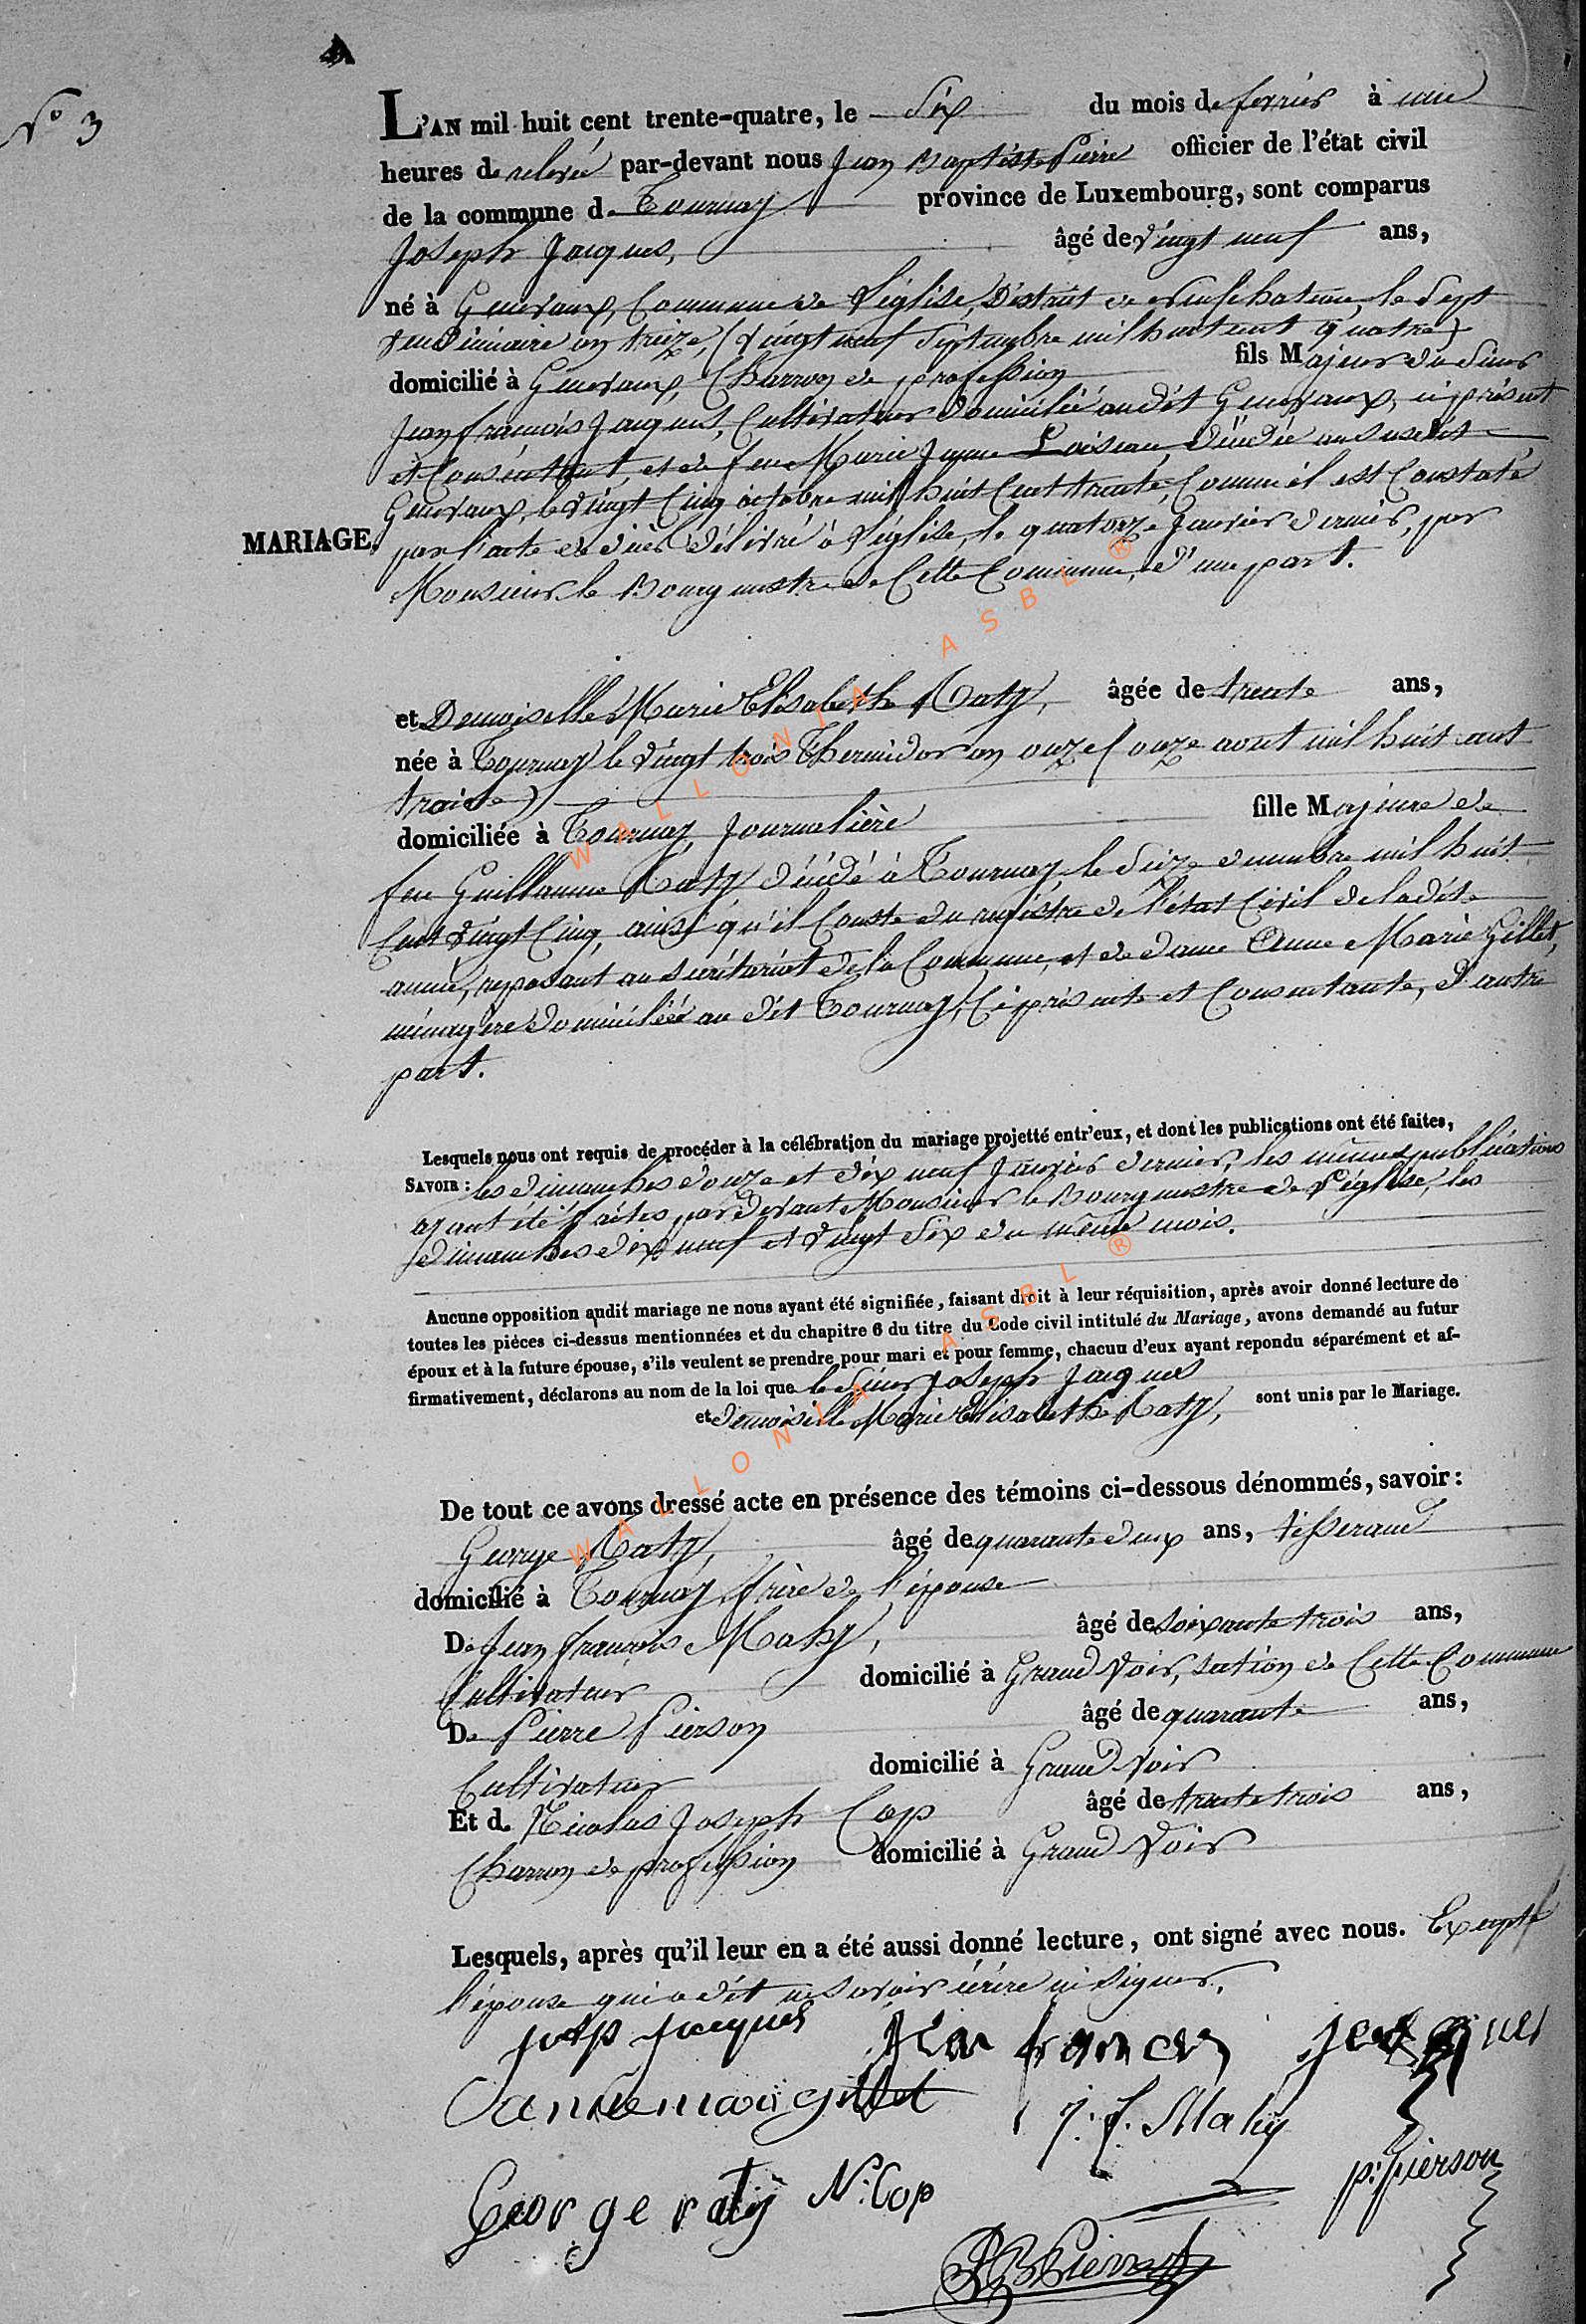 N° 3
L'AN mil huit cent trente-quatre, le six du mois de fevrier à une
heures de relevée par-devant nous Jean Baptiste Pierre officier de l'état civil
de la commune d. Tournay province de Luxembourg, sont comparus
Joseph Jacques, âgé de vingt neuf ans,
né à Gennevaux, Commune de Léglise, District de Neufchateau, le sept
vendimiaire an treize, (vingt neuf Septembre mil huit cent quatre)
domicilié à Gennevaux, Charron de profession fils Majeur du sieur
Jean françois Jacques, Cultivateur domicilié audit Gennevaux, ci présent
et Consentant, et de feue Marie Jeanne Loiseau, décédée au susdit
Gennevaux, le vingt Cinq octobre mil huit Cent trente, Comme il est Constaté
MARIAGE.
par l'acte de décès délivré à Léglise, le quatorze Janvier dernier, par
Monsieur le Bourgmestre de Cette Commune, d'une part.
et Demoiselle Marie Elisabeth Raty, âgée de trente ans,
née à Tournay le vingt trois Thermidor an onze (onze aout mil huit cent
trois)
domiciliée à Tournay, Journalière fille Majeure de
feu Guillaume Raty décédé à Tournay, le seize decembre mil huit
Cent vingt Cinq, ainsi qu'il Conste du registre de l'état Civil de ladite
année, reposant au secrétariat de la Commune, et de dame Anne Marie Gillet,
ménagère domiciliée au dit Tournay, Ci présente et Consentante, d'autre
part.
Lesquels nous ont requis de procéder à la célébration du mariage projetté entr'eux, et dont les publications ont été faites,
SAVOIR : les dimanches douze et dix neuf Janvier dernier, les mêmes publications
ayant été faites par devant Monsieur le Bourgmestre de Léglise, les
dimanches dix neuf et vingt six du même mois.
Aucune opposition audit mariage ne nous ayant été signifiée, faisant droit à leur réquisition, après avoir donné lecture de
toutes les pièces ci-dessus mentionnées et du chapitre 6 du titre du Code civil intitulé du Mariage, avons demandé au futur
époux et à la future épouse, s'ils veulent se prendre pour mari et pour femme, chacun d'eux ayant repondu séparément et af-
firmativement, déclarons au nom de la loi que le sieur Joseph Jacques
et demoiselle Marie Elisabeth Raty, sont unis par le Mariage.
De tout ce avons dressé acte en présence des témoins ci-dessous dénommés, savoir :
George Raty, âgé de quarante deux ans, tisserand
domicilié à Tournay, frère de l'épouse
De Jean françois Mahy, âgé de soixante trois ans,
Cultivateur domicilié à Grand Voir, section de Cette Commune
De Pierre Pierson âgé de quarante ans,
Cultivateur domicilié à Grand Voir
Et d. Nicolas Joseph Cop âgé de trente trois ans,
Charron de profession domicilié à Grand Voir
Lesquels, après qu'il leur en a été aussi donné lecture, ont signé avec nous. Excepté
l'épouse qui a dit ne savoir écrire ni signer.
Josp Jacques Jean francois jacques
anne marie gillet J. f. Mahy
George raty N. Cop p: pierson
JBPierre
WALLONIA ASBL ®
WALLONIA ASBL ®